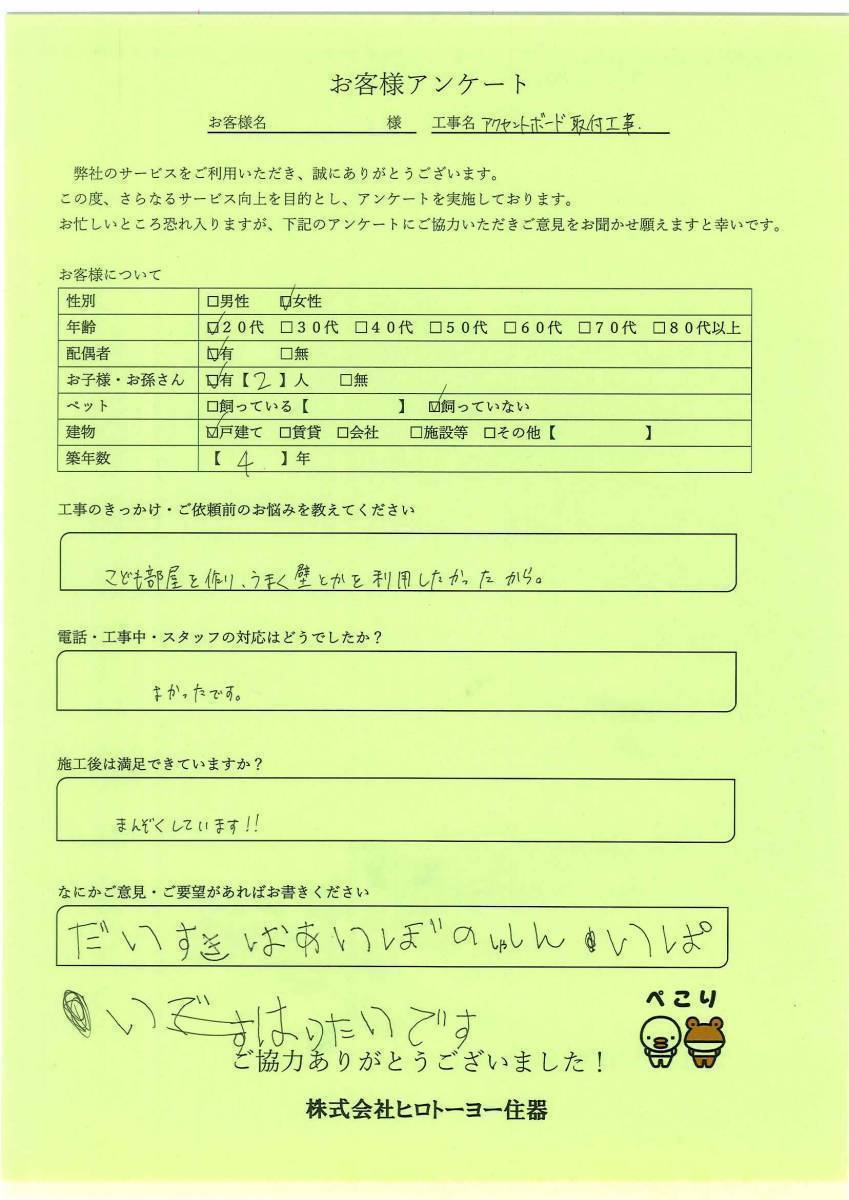 お客様アンケート
お客様名 様 工事名 アクセントボード取付工事.
弊社のサービスをご利用いただき、誠にありがとうございます。
この度、さらなるサービス向上を目的とし、アンケートを実施しております。
お忙しいところ恐れ入りますが、下記のアンケートにご協力いただきご意見をお聞かせ願えますと幸いです。
お客様について
性別 □男性 ☑女性
年齢 ☑20代 □30代 □40代 □50代 □60代 □70代 □80代以上
配偶者 ☑有 □無
お子様・お孫さん ☑有【2】人 □無
ペット □飼っている【 】 ☑飼っていない
建物 ☑戸建て □賃貸 □会社 □施設等 □その他【 】
築年数 【4】年
工事のきっかけ・ご依頼前のお悩みを教えてください
こども部屋を作り、うまく壁とかを利用したかったから。
電話・工事中・スタッフの対応はどうでしたか？
よかったです。
施工後は満足できていますか？
まんぞくしています!!
なにかご意見・ご要望があればお書きください
だいすき いっぱ
いです はりたいです
ぺこり
ご協力ありがとうございました！
株式会社ヒロトーヨー住器